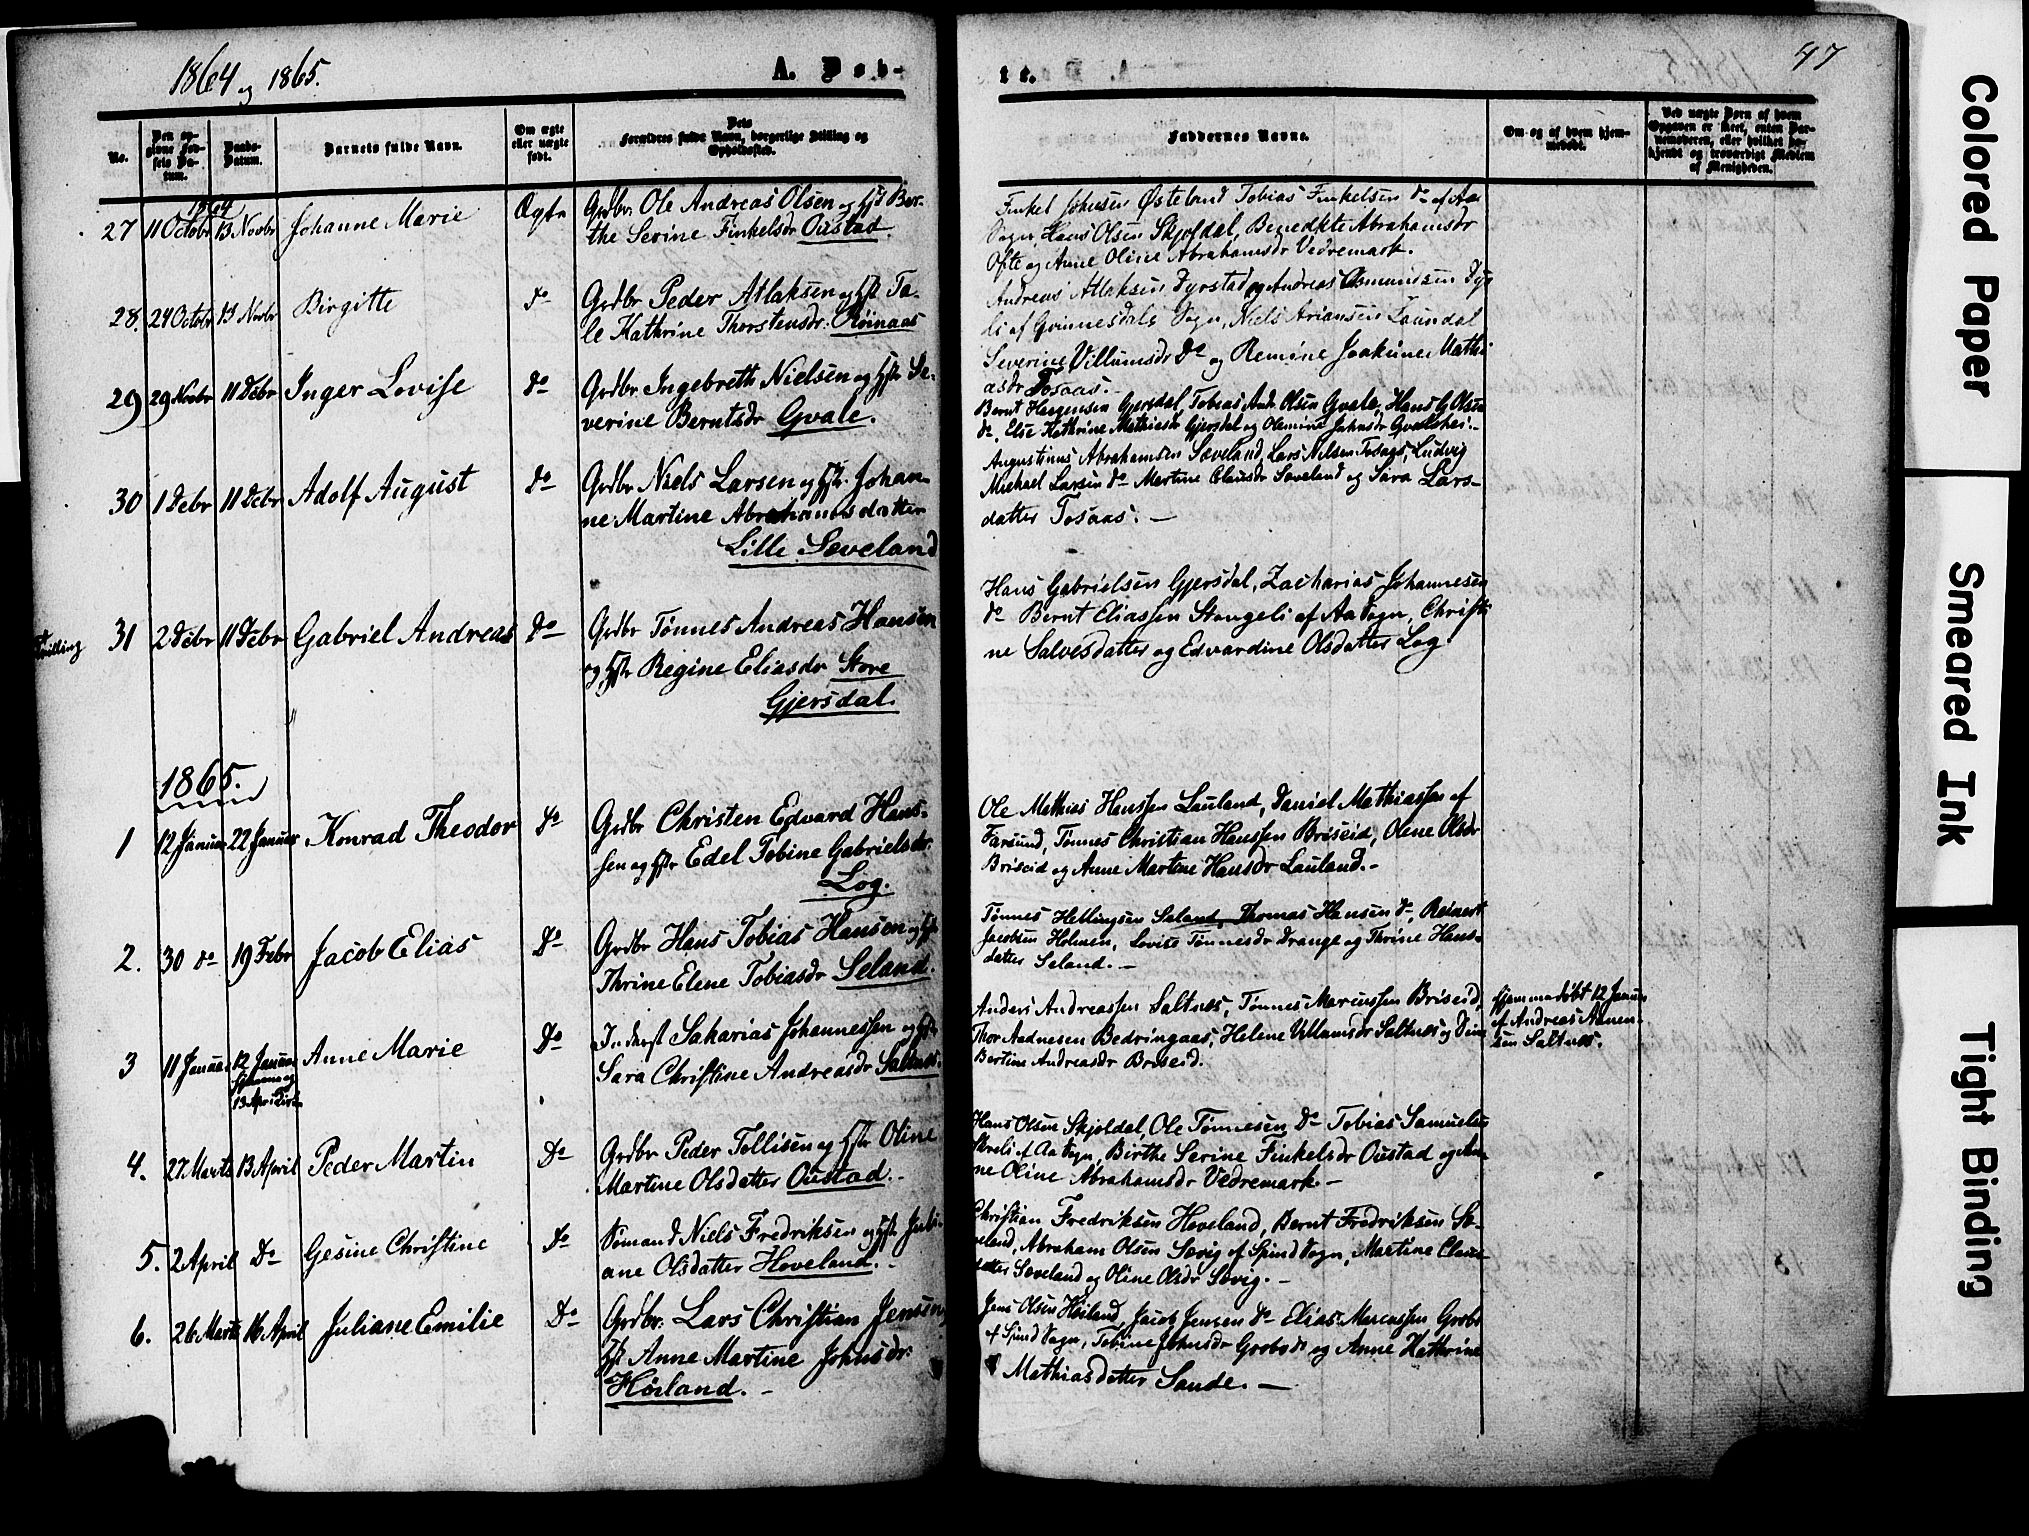 1864 og 1865.
A. Døb-
te.
47
No.
Den opgivne Fødsels Datum.
Daabs-Datum.
Barnets fulde Navn.
Om ægte eller uægte født.
Dets Forældres fulde Navn, borgerlige Stilling og Opholdssted.
Faddernes Navne.
Om og af hvem hjemmedøbt.
1864
27 11 Octobr 13 Novbr Johanne Marie Ægte
Grdbr. Ole Andreas Olsen og Hst Ber-
the Serine Finkelsdr Oustad.
Finkel Johnsen Østebnd Tobias Finkelsen do af Aa
Sogn, Hans Olsen Skjoldal, Benedikte Abrahamsdr
Ofte og Anne Oline Abrahamsdr Vedremark.
28. 24 Octobr 13 Novbr Birgitte do
Grdbr Peder Atlaksen og Hst Ta-
le Kathrine Thorstensdr. Røinaas
Andreas Atlaksen Fyrstad og Andreas Osmundsen
li af Gvinnesdals Sogn, Niels Ariansen Laundal
Severine Villumsdr do og Remine Joakime Mathi
asdr Tosaas.
29 29 Novbr 11 Debr Inger Lovise do
Grdbr Ingebreth Nielsen og Hst Se-
verine Berntsdr Gvale.
Bernt Gjersdal, Tobias Andr. Olsen Gvale, Hans G Olsen
do, Else Kathrine Mathiasdr Gjersdal og Olemine Johnsdr
30 1 Debr 11 Debr Adolf August do
Grdbr Niels Larsen og Hst. Johan-
ne Martine Abrahamsdatter
Lille Sæveland
Augustinus Abrahamsen Sæveland, Lars Nilsen Tosaas, Ludvig
Michael Larsen do Martine Clausdr Sæveland og Sara Lars-
datter Tosaas. —
Tvilling
31 2 Debr 11 Debr Gabriel Andreas do
Grdbr Tønnes Andreas Hansen
og Hst Regine Eliasdr Store
Gjersdal.
Hans Gabrielsen Gjersdal, Zacharias Johannesen
do Bernt Eliassen Stangeli af Aa Sogn, Christi
ne Salvesdatter og Edvardine Olsdatter Log
1865.
1 12 Januar 22 Januar Konrad Theodor do
Grdbr Christen Edvard Hans-
sen og Hst Edel Tobine Gabrielsdr.
Log.
Ole Mathias Hanssen Lauland, Daniel Mathiassen af
Farsund, Tønnes Christian Hanssen Briseid, Olene Olsdr
Briseid og Anne Martine Hansdr Lauland. —
2. 30 do 19 Febr Jacob Elias do
Grdbr Hans Tobias Hansen og Hst
Thrine Elene Tobiasdr Seland.
Tønnes Hellingsen Seland, Thomas Hansen do, Reinert
Jacobsen Holmen, Lovise Tønnesdr Drange og Thrine Hans-
datter Seland. —
3 11 Januar 12 Januar Hjemme og 13 April Kirk. Anne Marie do
Inderst Sakarias Johannessen og Hst
Sara Christine Andreasdr Saltnes.
Anders Andreassen Saltnes, Tønnes Marcussen Briseid,
Thor Aadnesen Bedringaas, Helene Villumsdr Saltnes og
Bertine Andreasdr Briseid.
Hjemmedøbt 12 Januar
af Andreas Aanen-
sen Saltnes.
4. 27 Marts 13 April Peder Martin do
Grdbr Peder Tollisen og Hst Oline
Martine Olsdatter Oustad. —
Hans Olsen Skjoldal, Ole Tønnesen do Tobias Samuelsen
Skreli af Aa Sogn, Birthe Serine Finkelsdr Oustad og An
ne Oline Abrahamsdr Vedremark. —
5. 2 April do Gesine Christine do
Sømand Niels Fredriksen og Hst Juli-
ane Olsdatter Hoveland. —
Christian Fredriksen Hoveland, Bernt Fredriksen Sæ-
veland, Abraham Olsen Sævig af Spind Sogn, Martine Claus
datter Sæveland og Oline Olsdr Sævig. —
6. 26 Marts 16 April Juliane Emilie do
Grdbr. Lars Christian Jensen og
Hst Anne Martine Johnsdr.
Høiland. —
Jens Olsen Høiland, Jacob Jensen do Elias Marcussen Grobs
af Spind Sogn, Tobine Johnsdr og Anne Kathrine
Mathiasdatter Sande. —
Colored Paper
Smeared Ink
Tight Binding